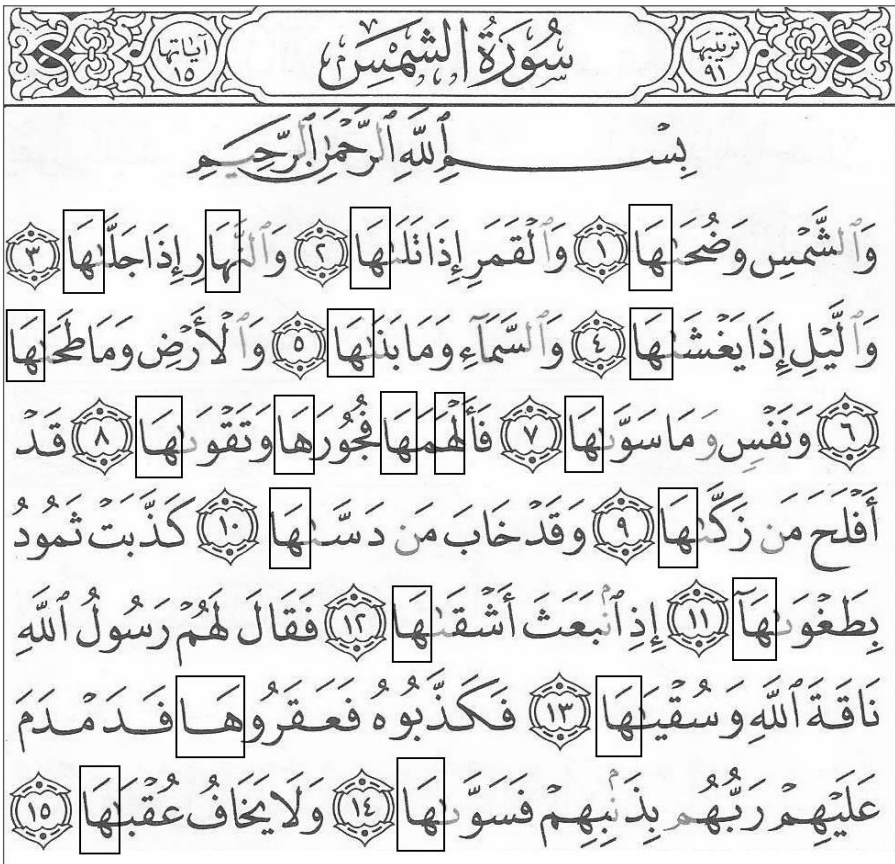 ترتيبها ٩١ سُورَةُ الشَّمْسِ آياتها ١٥
بِسْمِ ٱللَّهِ ٱلرَّحْمَٰنِ ٱلرَّحِيمِ
وَٱلشَّمْسِ وَضُحَىٰهَا ١ وَٱلْقَمَرِ إِذَا تَلَىٰهَا ٢ وَٱلنَّهَارِ إِذَا جَلَّىٰهَا ٣
وَٱلَّيْلِ إِذَا يَغْشَىٰهَا ٤ وَٱلسَّمَآءِ وَمَا بَنَىٰهَا ٥ وَٱلْأَرْضِ وَمَا طَحَىٰهَا
٦ وَنَفْسٍ وَمَا سَوَّىٰهَا ٧ فَأَلْهَمَهَا فُجُورَهَا وَتَقْوَىٰهَا ٨ قَدْ
أَفْلَحَ مَن زَكَّىٰهَا ٩ وَقَدْ خَابَ مَن دَسَّىٰهَا ١٠ كَذَّبَتْ ثَمُودُ
بِطَغْوَىٰهَآ ١١ إِذِ ٱنۢبَعَثَ أَشْقَىٰهَا ١٢ فَقَالَ لَهُمْ رَسُولُ ٱللَّهِ
نَاقَةَ ٱللَّهِ وَسُقْيَٰهَا ١٣ فَكَذَّبُوهُ فَعَقَرُوهَا فَدَمْدَمَ
عَلَيْهِمْ رَبُّهُم بِذَنۢبِهِمْ فَسَوَّىٰهَا ١٤ وَلَا يَخَافُ عُقْبَٰهَا ١٥